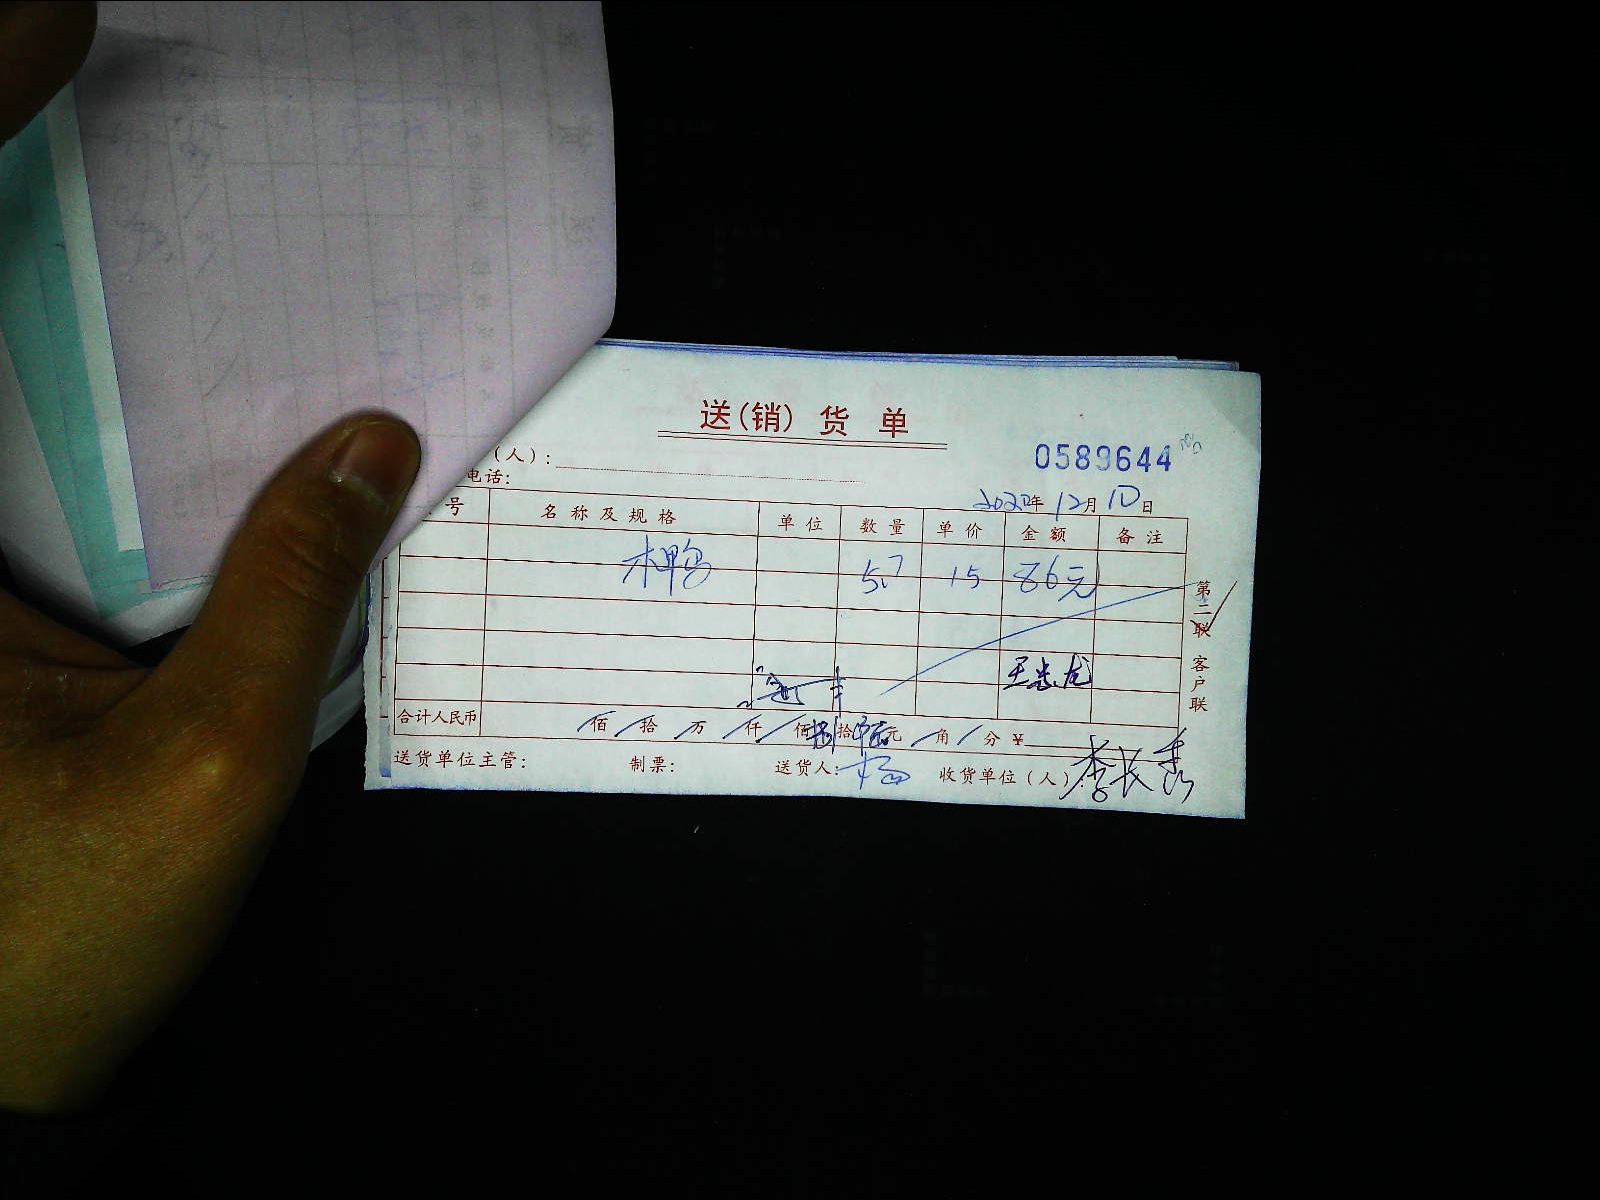 送(销)货单
0589644
(人):
电话:
年12月10日
号 名称及规格 单位 数量 单价 金额 备注
鸭 5.7 15 86元
第二联 客户联
合计人民币 佰 拾 万 仟 佰 捌拾 元 角 分 ¥
送货单位主管: 制票: 送货人:杨 收货单位(人)